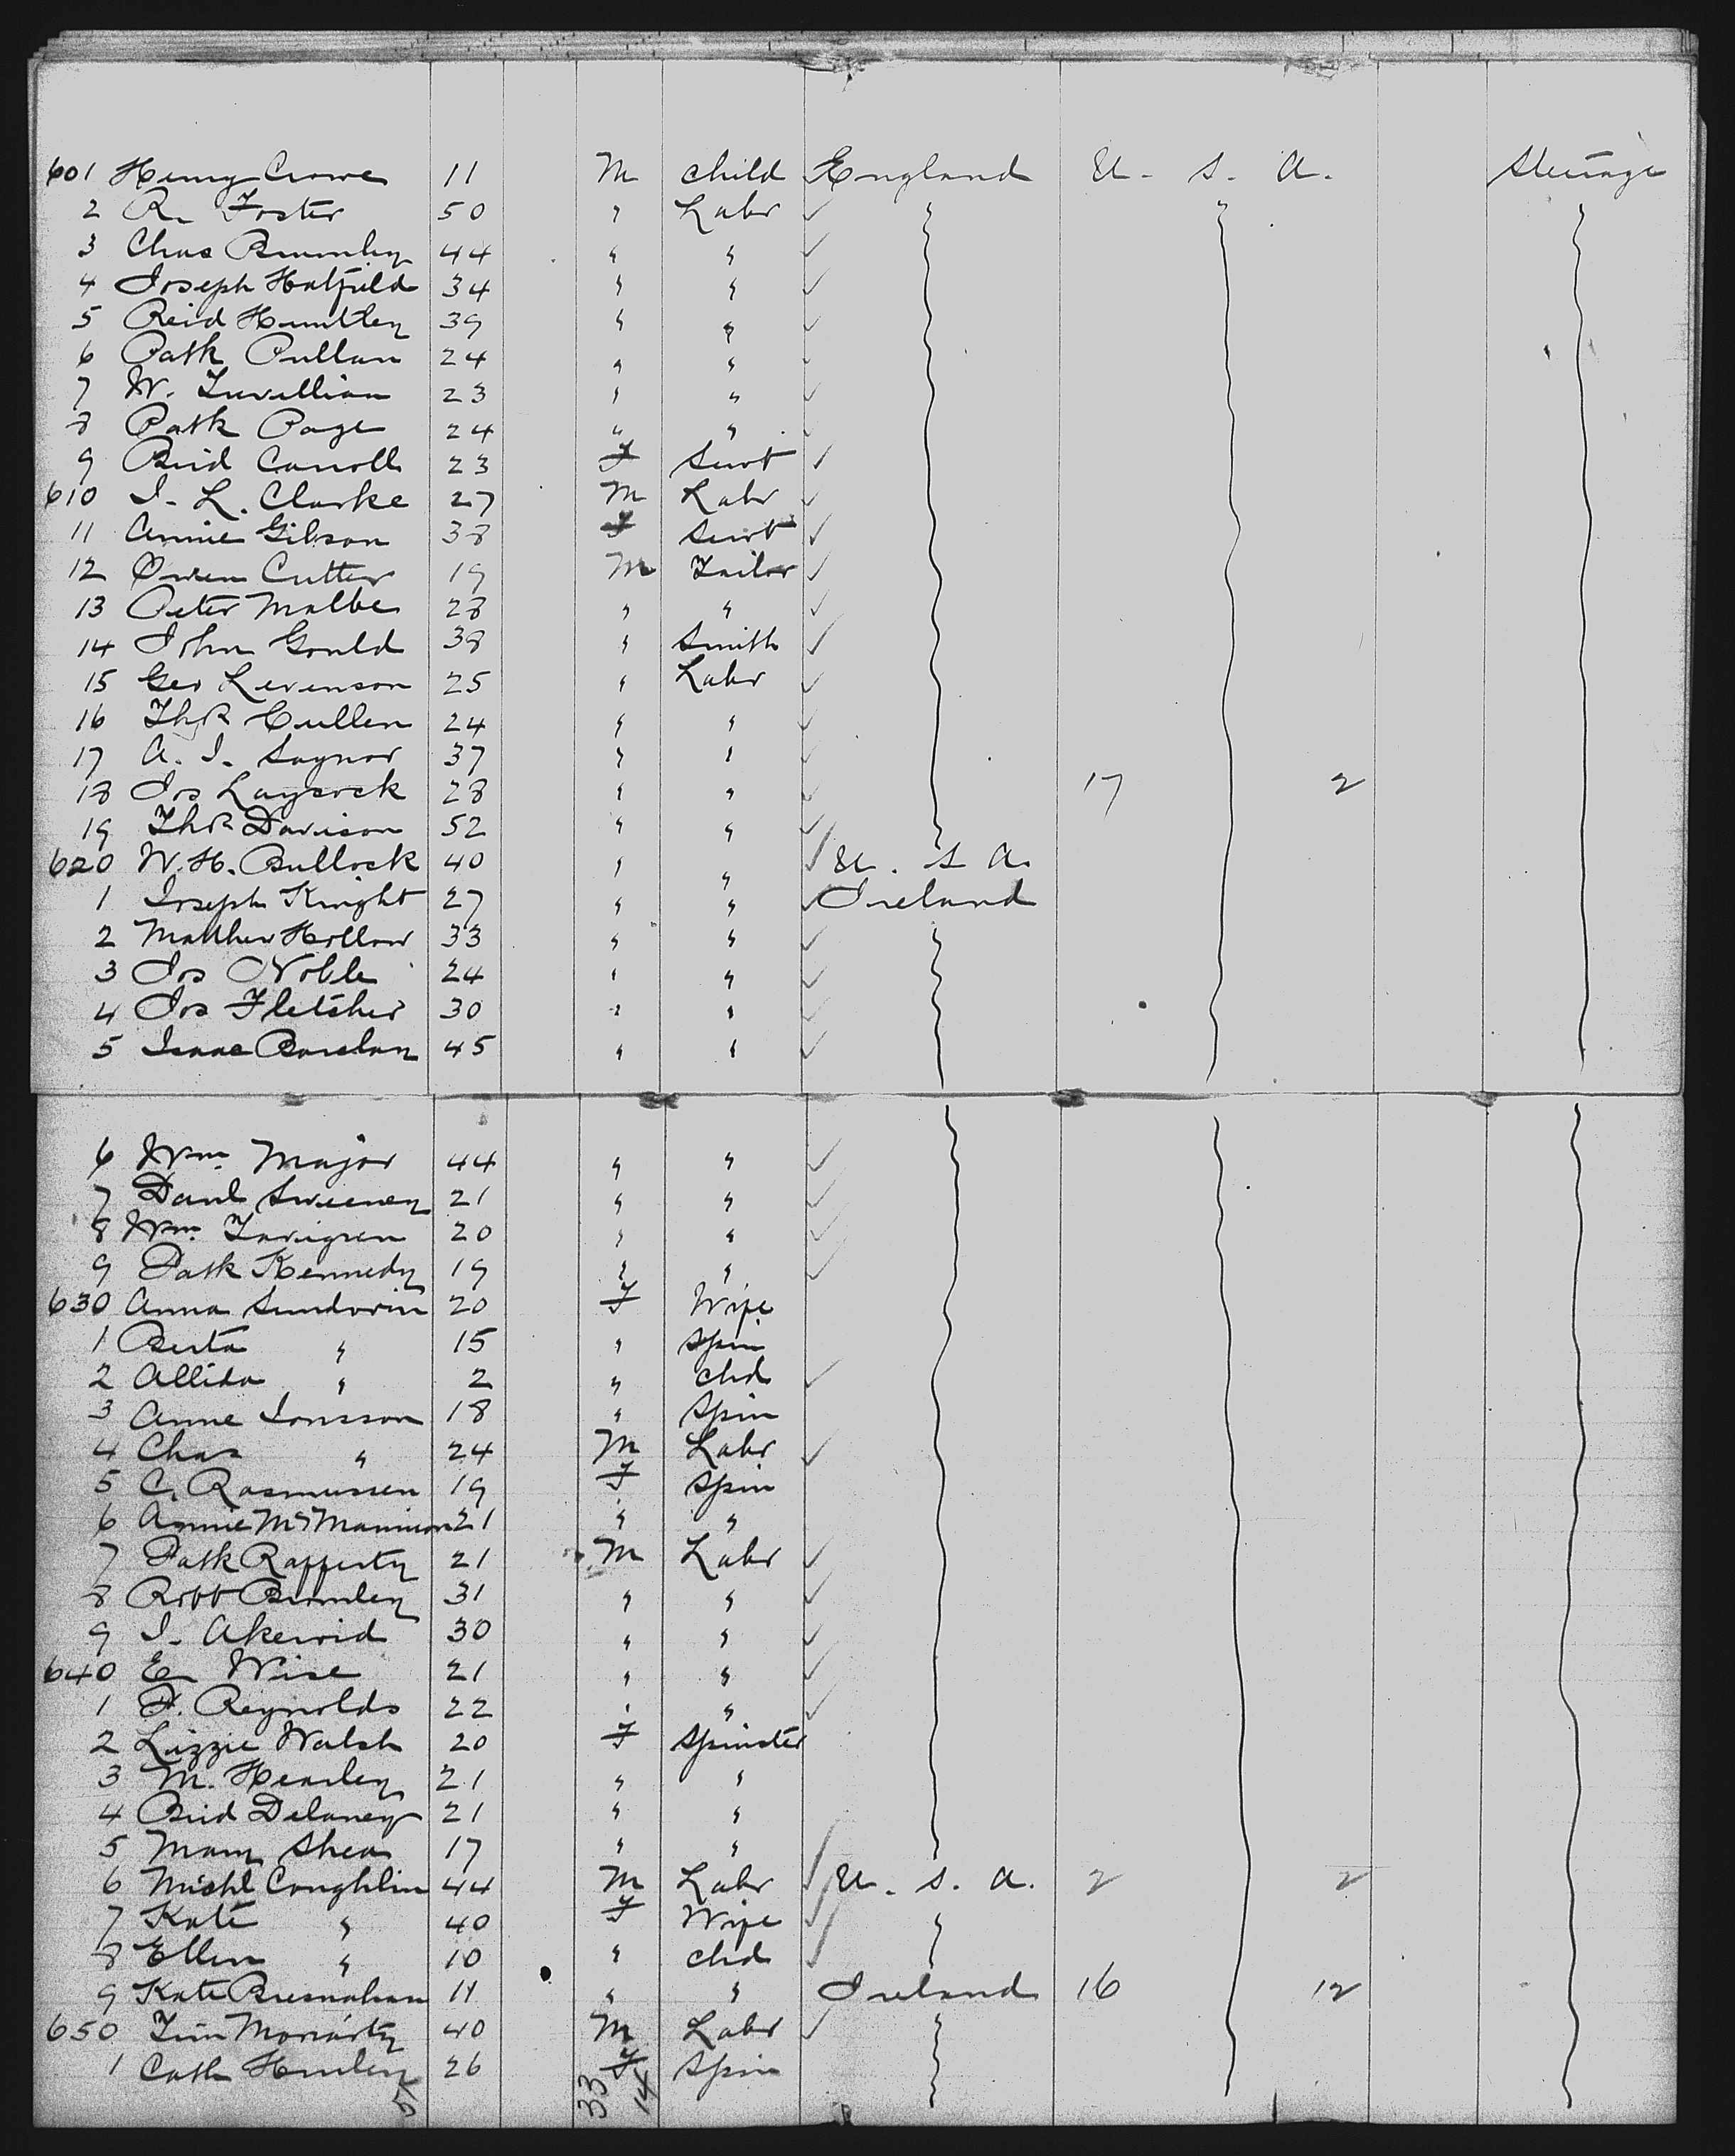 601 Henry Crowe 11 M child England U. S. A. Steerage
2 R. Foster 50 " Labr
3 Chas Brumley 44 " "
4 Joseph Hatfield 34 " "
5 Reid Huntley 39 " "
6 Patk Pullan 24 " "
7 W. 23 " "
8 Patk Page 24 " "
9 Brid Carroll 23 F Servt
610 J. L. Clarke 27 M Labr
11 Annie Gibson 38 F Servt
12 Owen Cutter 19 M Tailor
13 Peter Malbe 28 " "
14 John Gould 38 " Smith
15 Geo Levenson 25 " Labr
16 Thos Cullen 24 " "
17 A. J. Saynor 37 " "
18 Jos Laycock 28 " " 17 2
19 Thos Davison 52 " "
620 W. H. Bullock 40 " " U. S. A.
1 Joseph Knight 27 " " Ireland
2 Matthew Hollow 33 " "
3 Jos Noble 24 " "
4 Jos Fletcher 30 " "
5 Isaac Barclay 45 " "
6 Wm. Major 44 " "
7 Danl Sweeney 21 " "
8 Wm. 20 " "
9 Patk Kennedy 19 " "
630 Anna Sundvrin 20 F Wife
1 Berta " 15 " Spin
2 Allida " 2 " chd
3 Anne Jonsson 18 " Spin
4 Chas " 24 M Labr
5 C. Rasmussen 19 F Spin
6 Annie McMannion 21 " "
7 Patk Rafferty 21 M Labr
8 Robt Brumley 31 " "
9 J. Akeroid 30 " "
640 E. Wise 21 " "
1 P. Reynolds 22 " "
2 Lizzie Walsh 20 F Spinster
3 M. Hearley 21 " "
4 Brid Delaney 21 " "
5 Mary Shea 17 " "
6 Michl Coughlin 44 M Labr U. S. A. 2 2
7 Kate " 40 F Wife
8 Ellen " 10 " chd
9 Kate Bresnahan 11 " " Ireland 16 12
650 Tim Moriarty 40 M Labr
1 Cath Henley 26 F Spin
51 33 14